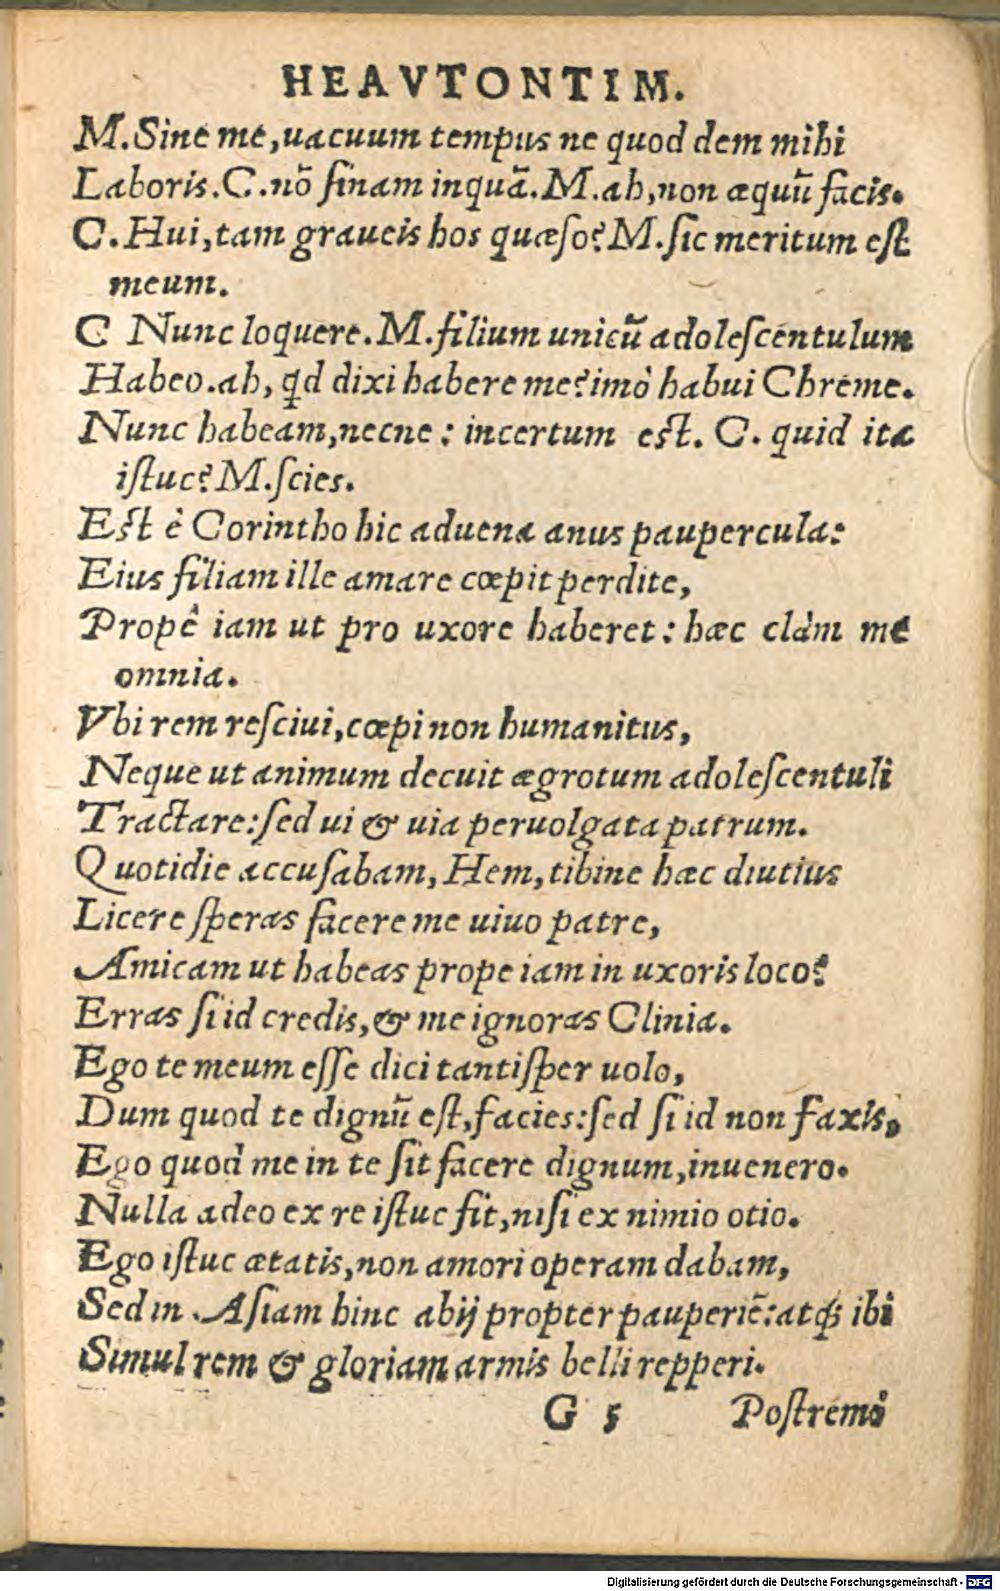 HEAVTONTIM.
M.Sine me,uacuum tempus ne quod dem mihi
Laboris.C.nõ ſinam inquã.M.ah,non æquũ facis.
C.Hui,tam graueis hos quæſo?M.ſic meritum eſt
meum.
C Nunc loquere.M.filium unicũ adoleſcentulum
Habeo.ah, qd dixi habere me?imò habui Chreme.
Nunc habeam,necne: incertum eſt. C. quid ita
iſtuc?M.ſcies.
Eſt è Corintho hic aduena anus paupercula:
Eius filiam ille amare cœpit perdite,
Propè iam ut pro uxore haberet: hæc clàm me
omnia.
Vbi rem reſciui,cœpi non humanitus,
Neque ut animum decuit ægrotum adoleſcentuli
Tractare:ſed ui & uia peruolgata patrum.
Quotidie accuſabam, Hem, tibine hæc diutius
Licere ſperas facere me uiuo patre,
Amicam ut habeas prope iam in uxoris loco?
Erras ſi id credis,& me ignoras Clinia.
Ego te meum eſſe dici tantiſper uolo,
Dum quod te dignũ eſt,facies:ſed ſi id non faxis,
Ego quod me in te ſit facere dignum,inuenero.
Nulla adeo ex re iſtuc fit,niſi ex nimio otio.
Ego iſtuc ætatis,non amori operam dabam,
Sed in Aſiam hinc abij propter pauperiẽ:atq; ibi
Simul rem & gloriam armis belli repperi.
G 5 Poſtremò
Digitalisierung gefördert durch die Deutsche Forschungsgemeinschaft - DFG